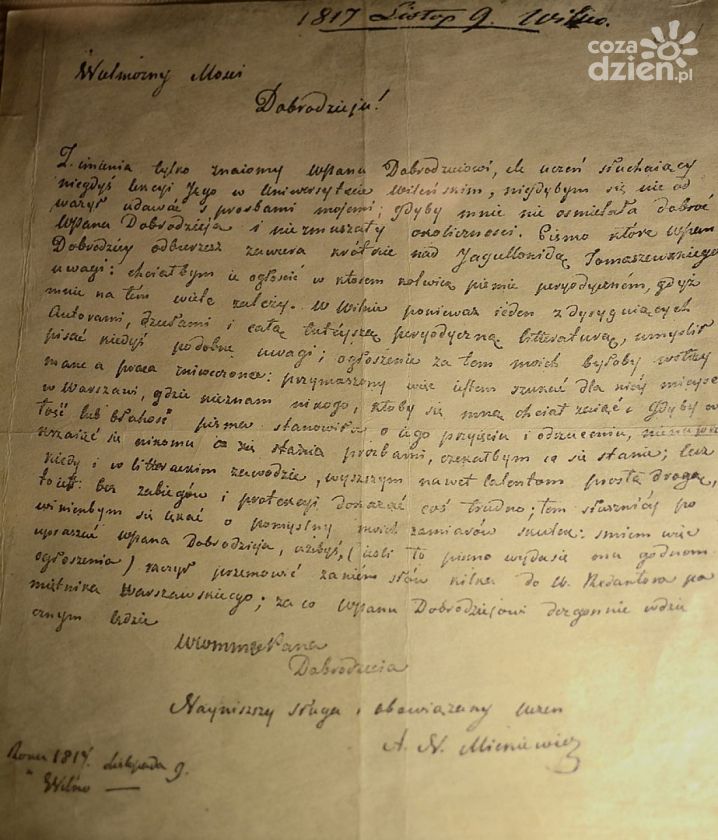 1817 Listop 9. Wilno.
coza
dzien.pl
Wielmożny Mości
Dobrodzieju!
Z imienia tylko znaiomy WPana Dobrodzieiowi, ile uczeń słuchaiący
niegdyś lekcyi Jego w Uniwersytecie Wileńskim, nigdybym się nie od
ważył udawać z prosbami mojemi; gdyby mnie nie ośmielała dobroć
WPana Dobrodzieja i nie zmuszały okoliczności. Pismo które WPan
Dobrodziey odbierzesz zawiera krótkie nad Jagiellonidą Tomaszewskiego
uwagi: chciałbym ie ogłosić w którem kolwiek pismie peryodycznem, gdyż
mnie na tém wiele zależy. W Wilnie ponieważ ieden z
Autorami, dziełami i całą tutejszą peryodyczną litteraturą, umyślił
pisać kiedyś podobne uwagi; ogłoszenie za tem moich byłoby wstrzy
mane a praca zniweczona: przymuszony więc iestem szukać dla nich miejsca
w Warszawi, gdzie nieznam nikogo, ktoby się mną chciał zaiąć. Gdyby w
tość lub błahość pisma stanowiła o iego przyięciu i odrzuceniu,
nikomu prozbami, czekałbym co się stanie; lecz
kiedy i w litterackim zawodzie, wyższym nawet talentom prostą drogą,
to iest: bez zabiegów i protekcyi dokazać coś trudno; tem słuszniéj po
winienbym się lękać o pomyślny moich zamiarów skutek: smiem więc
upraszać WPana Dobrodzieja, ażebyś, (ieśli to pismo wyda się onu godnem
ogłoszenia) raczył przemówić zaniem słów kilka do W. Redaktora pa
miętnika Warszawskiego; za co WPanu Dobrodziejowi dozgonnie wdzię
cznym będzie
WWommość Pana
Dobrodzieia
Nayniższy sługa i obowiązany uczeń
A. N. Mickiewicz
Roku 1817. Listopada 9.
Wilno —